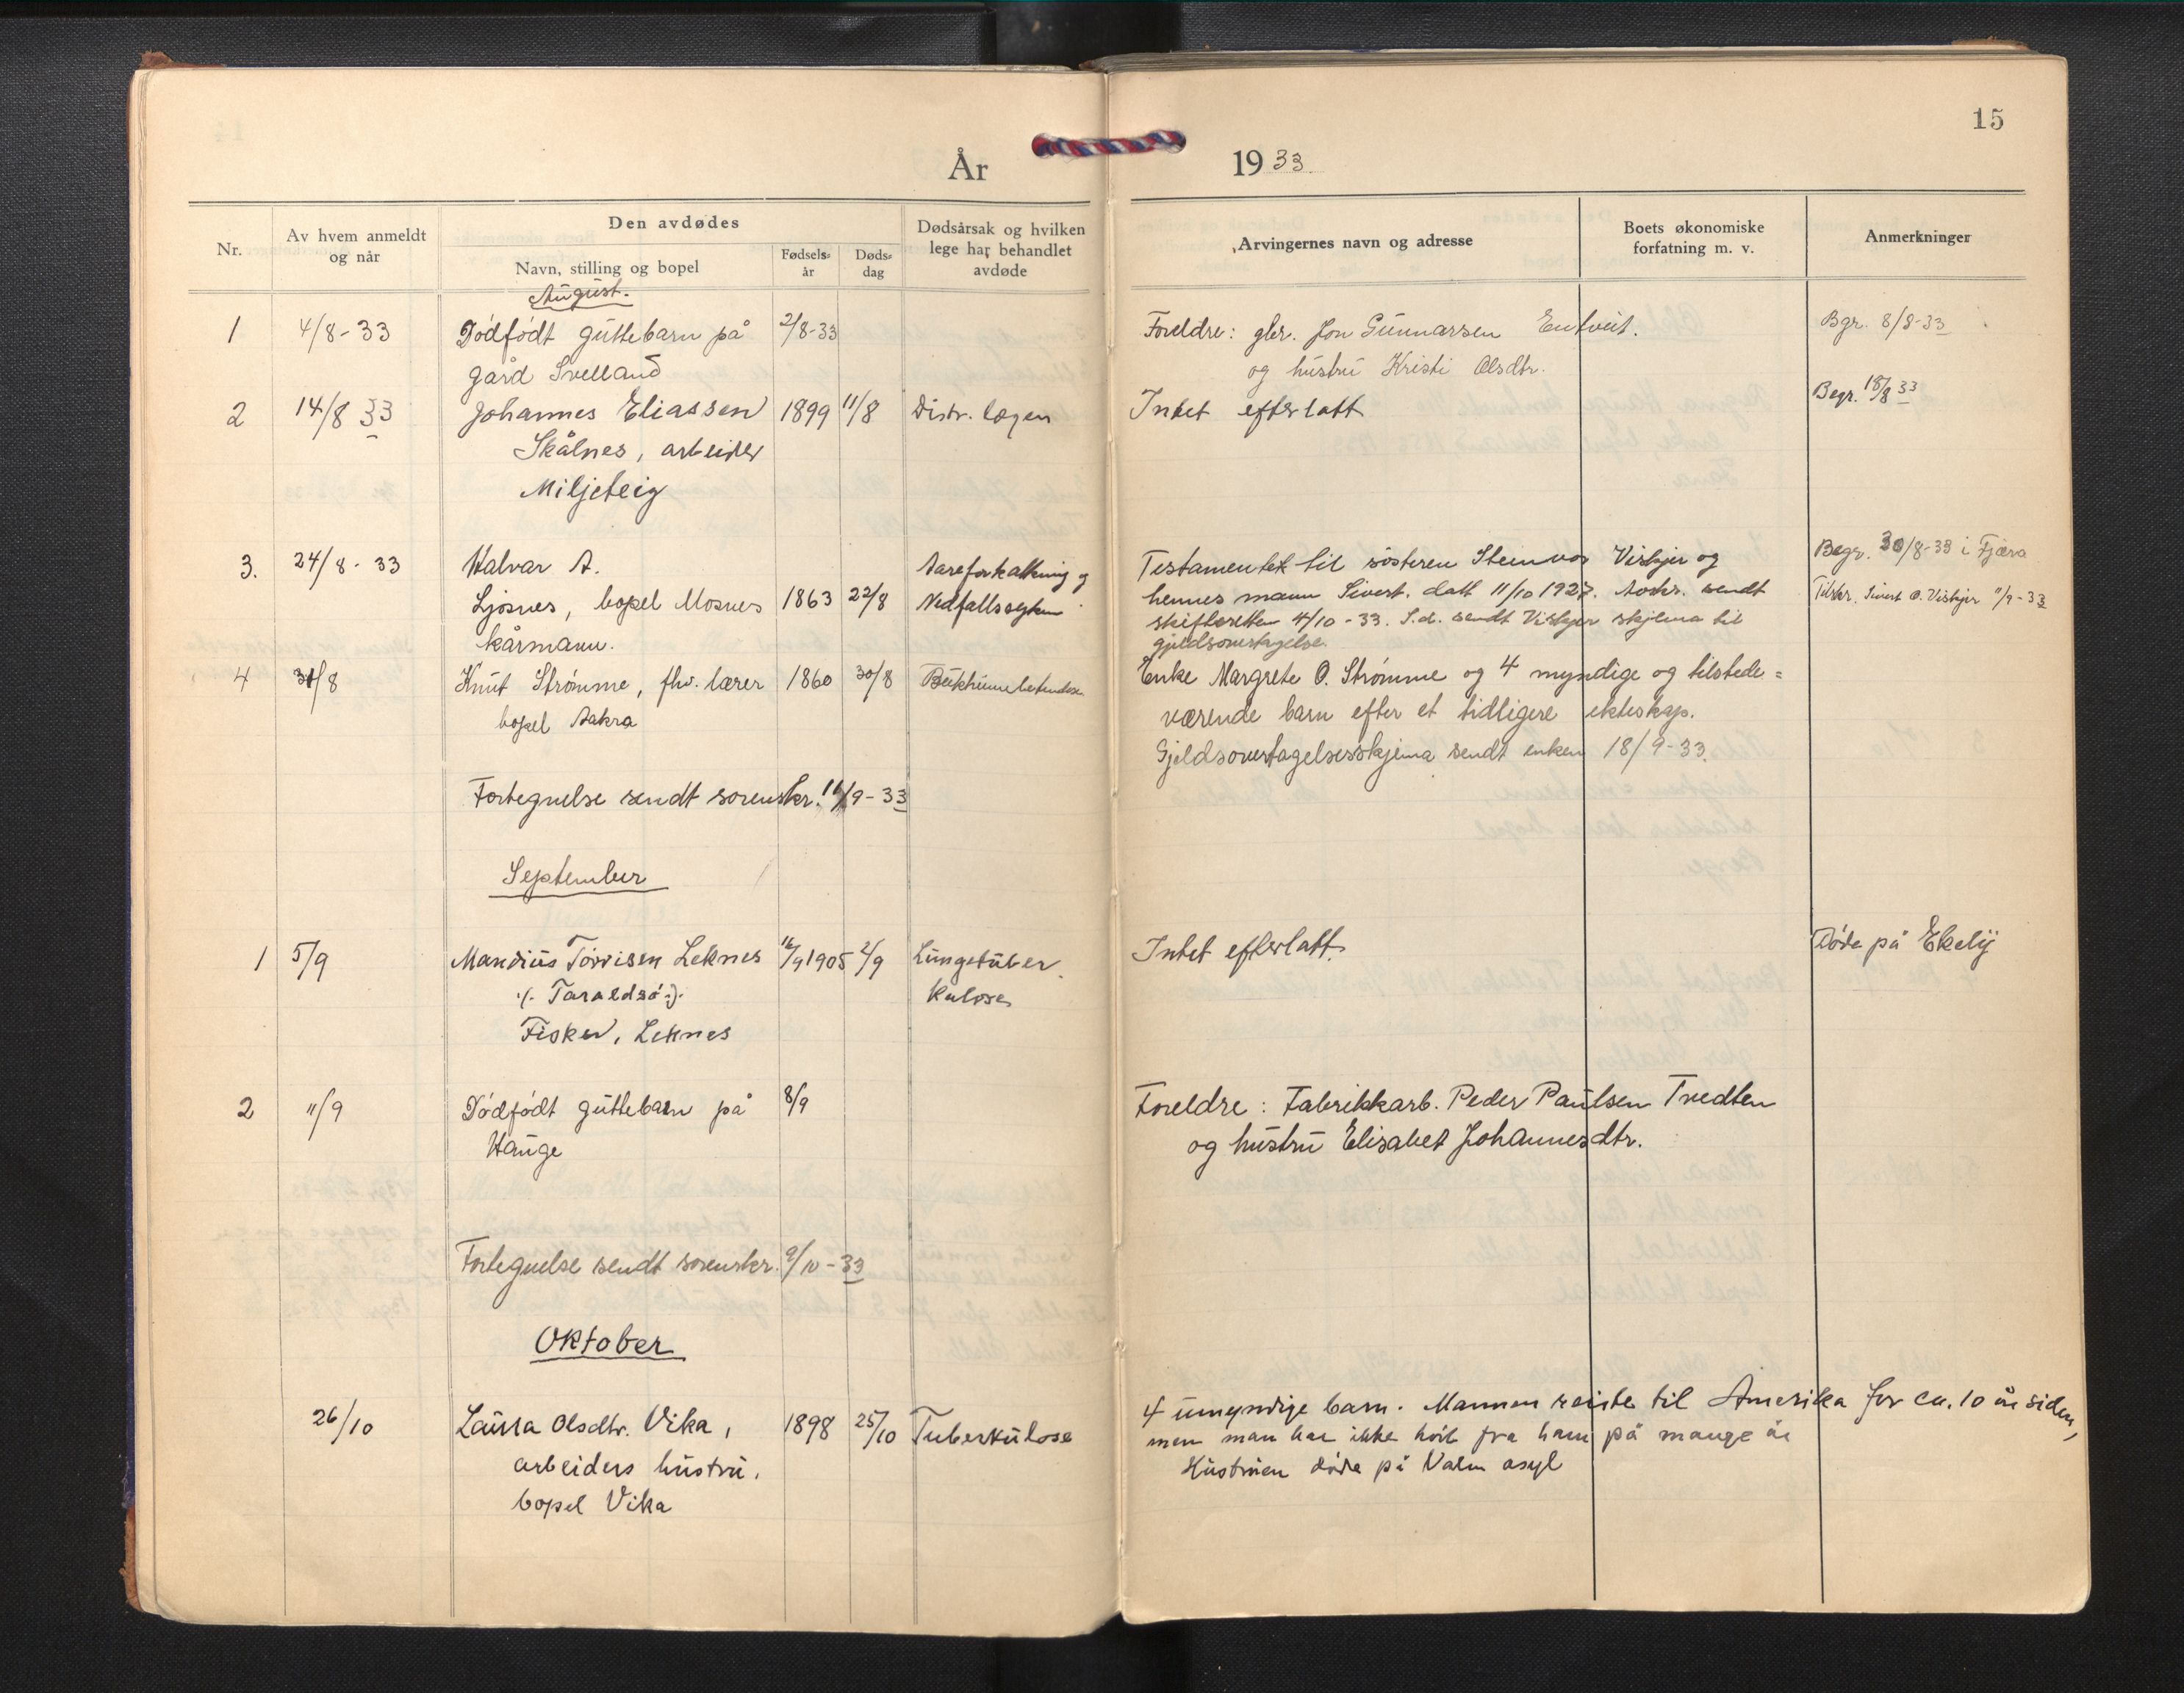 15
År 1933
Nr.
Av hvem anmeldt
og når
Den avdødes
Navn, stilling og bopel
Fødsels-
år
Døds-
dag
Dødsårsak og hvilken
lege har behandlet
avdøde
Arvingernes navn og adresse
Boets økonomiske
forfatning m. v.
Anmerkninger
August.
1 4/8-33 Dödfödt guttebarn på 2/8-33 Foreldre: gbr. Jon Gunnarsen Entveit. Bgr. 8/8-33
gård Svelland og hustru Kristi Olsdtr.
2 14/8 33 Johannes Eliassen 1899 11/8 Distr. lægen Intet efterlatt Begr. 18/8 33
Skålnes, arbeider
Miljeteig
3. 24/8-33 Halvar A. Aareforkalkning og Testamentet til søsteren Steinvor Visbjer og Begr. 30/8-33 i Fjæra
Ljosnes, bopel Mosnes 1863 22/8 Nedfallssyken. hennes mann Sivert. datt 11/10 1927. Avskr. sendt Tilskr. Sivert O. Visbjer 11/9-33
kårmann. skifteretten 4/10-33. S.d. sendt Visbjer skjema til
gjeldsovertagelse.
4 31/8 Knut Strömme, fhv. lærer 1860 30/8 Enke Margrete O. Strömme og 4 myndige og tilstede=
bopel Aakra værende barn efter et tidligere ekteskap.
Gjeldsovertagelsesskjema sendt enken 18/9-33.
Fortegnelse sendt sorenskr. 11/9-33
September
1 5/9 Mandius Torrisen Leknes 16/9 1905 2/9 Lungetuber Intet efterlatt. Döde på Ekely
./. Taraldsö :/. kulose
Fisker, Leknes
2 11/9 Dödfödt guttebarn på 8/9 Foreldre: Fabrikkarb. Peder Paulsen Tvedten
Hauge og hustru Elisabet Johannesdtr.
Fortegnelse sendt sorenskr. 9/10-33
Oktober
26/10 Laura Olsdtr. Vika, 1898 25/10 Tuberkulose 4 umyndige barn. Mannen reiste til Amerika for ca. 10 år siden,
arbeiders hustru, men man har ikke hört fra ham på mange år
bopel Vika Hustruen döde på Valen asyl